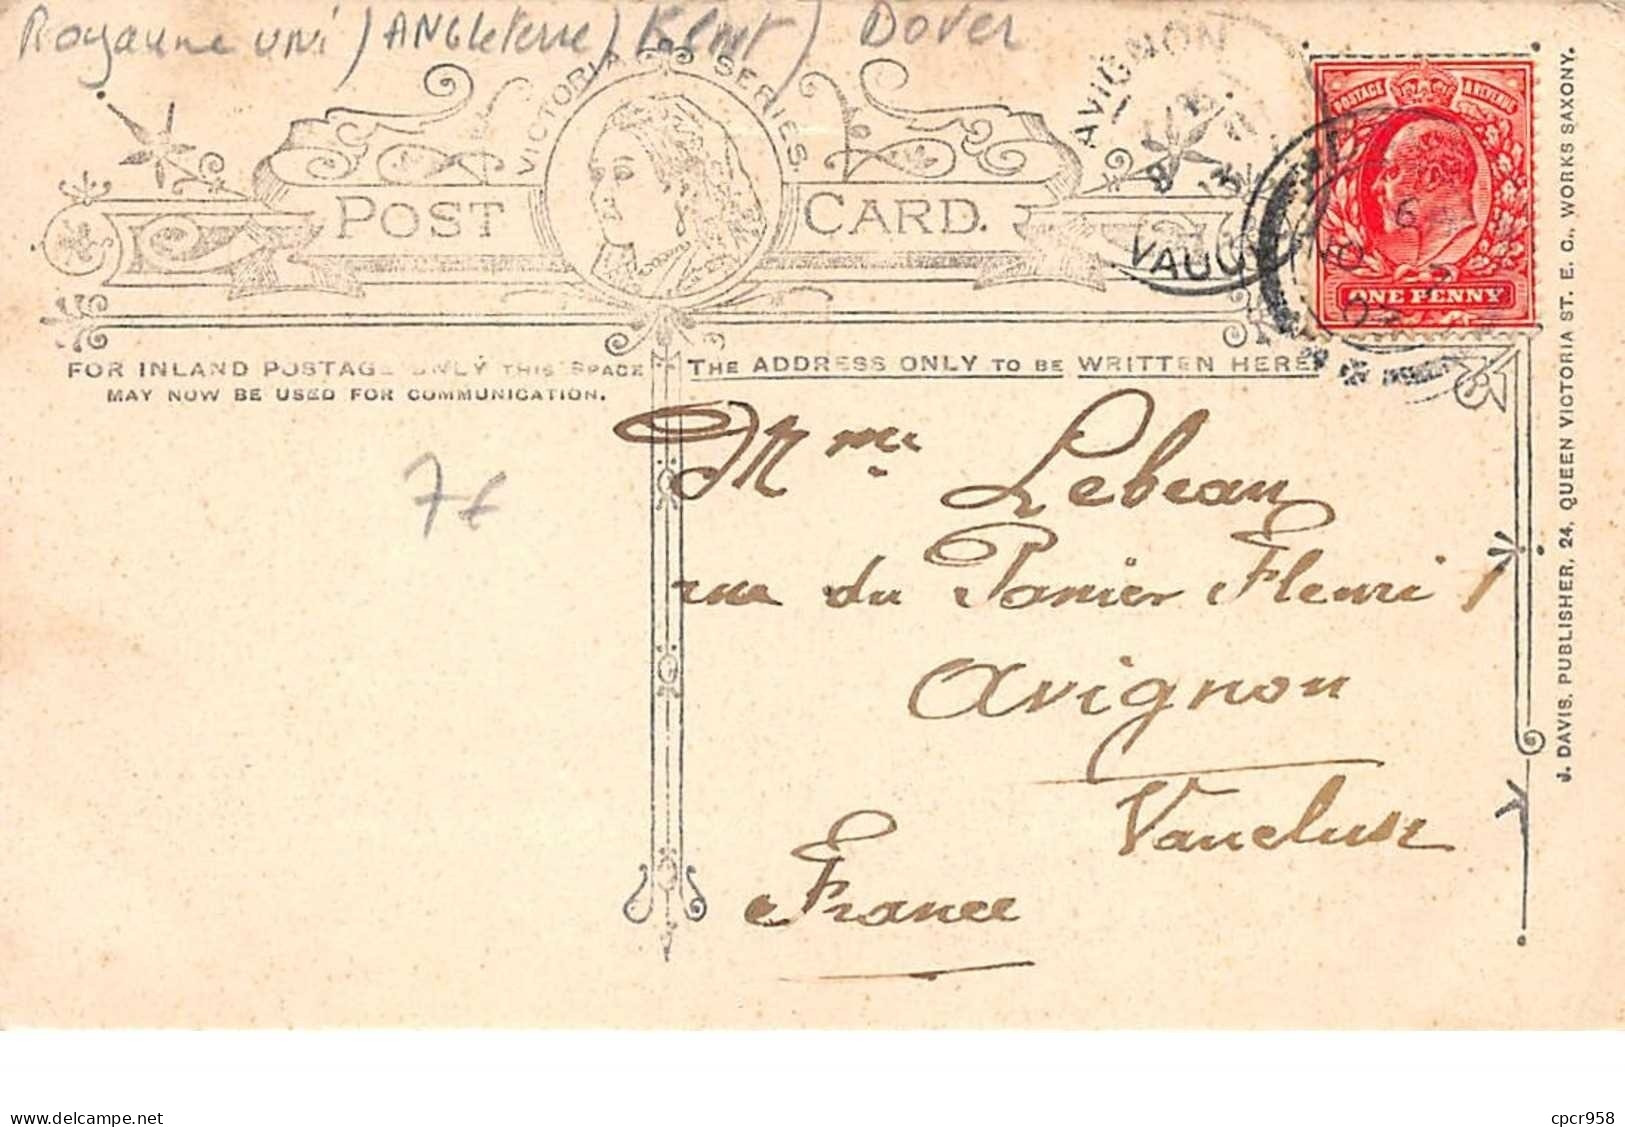 Royaume uni / ANGLeterre / Kent / Dover
VICTORIA SERIES.
POST CARD.
AVIGNON
VAUCLUSE
POSTAGE & REVENUE
ONE PENNY
FOR INLAND POSTAGE ONLY THIS SPACE
MAY NOW BE USED FOR COMMUNICATION.
THE ADDRESS ONLY TO BE WRITTEN HERE
7€
Mme Lebeau
rue du Panier Fleuri
Avignon
Vaucluse
France
J. DAVIS, PUBLISHER, 24, QUEEN VICTORIA ST. E. C., WORKS SAXONY.
delcampe.net
cpcr958